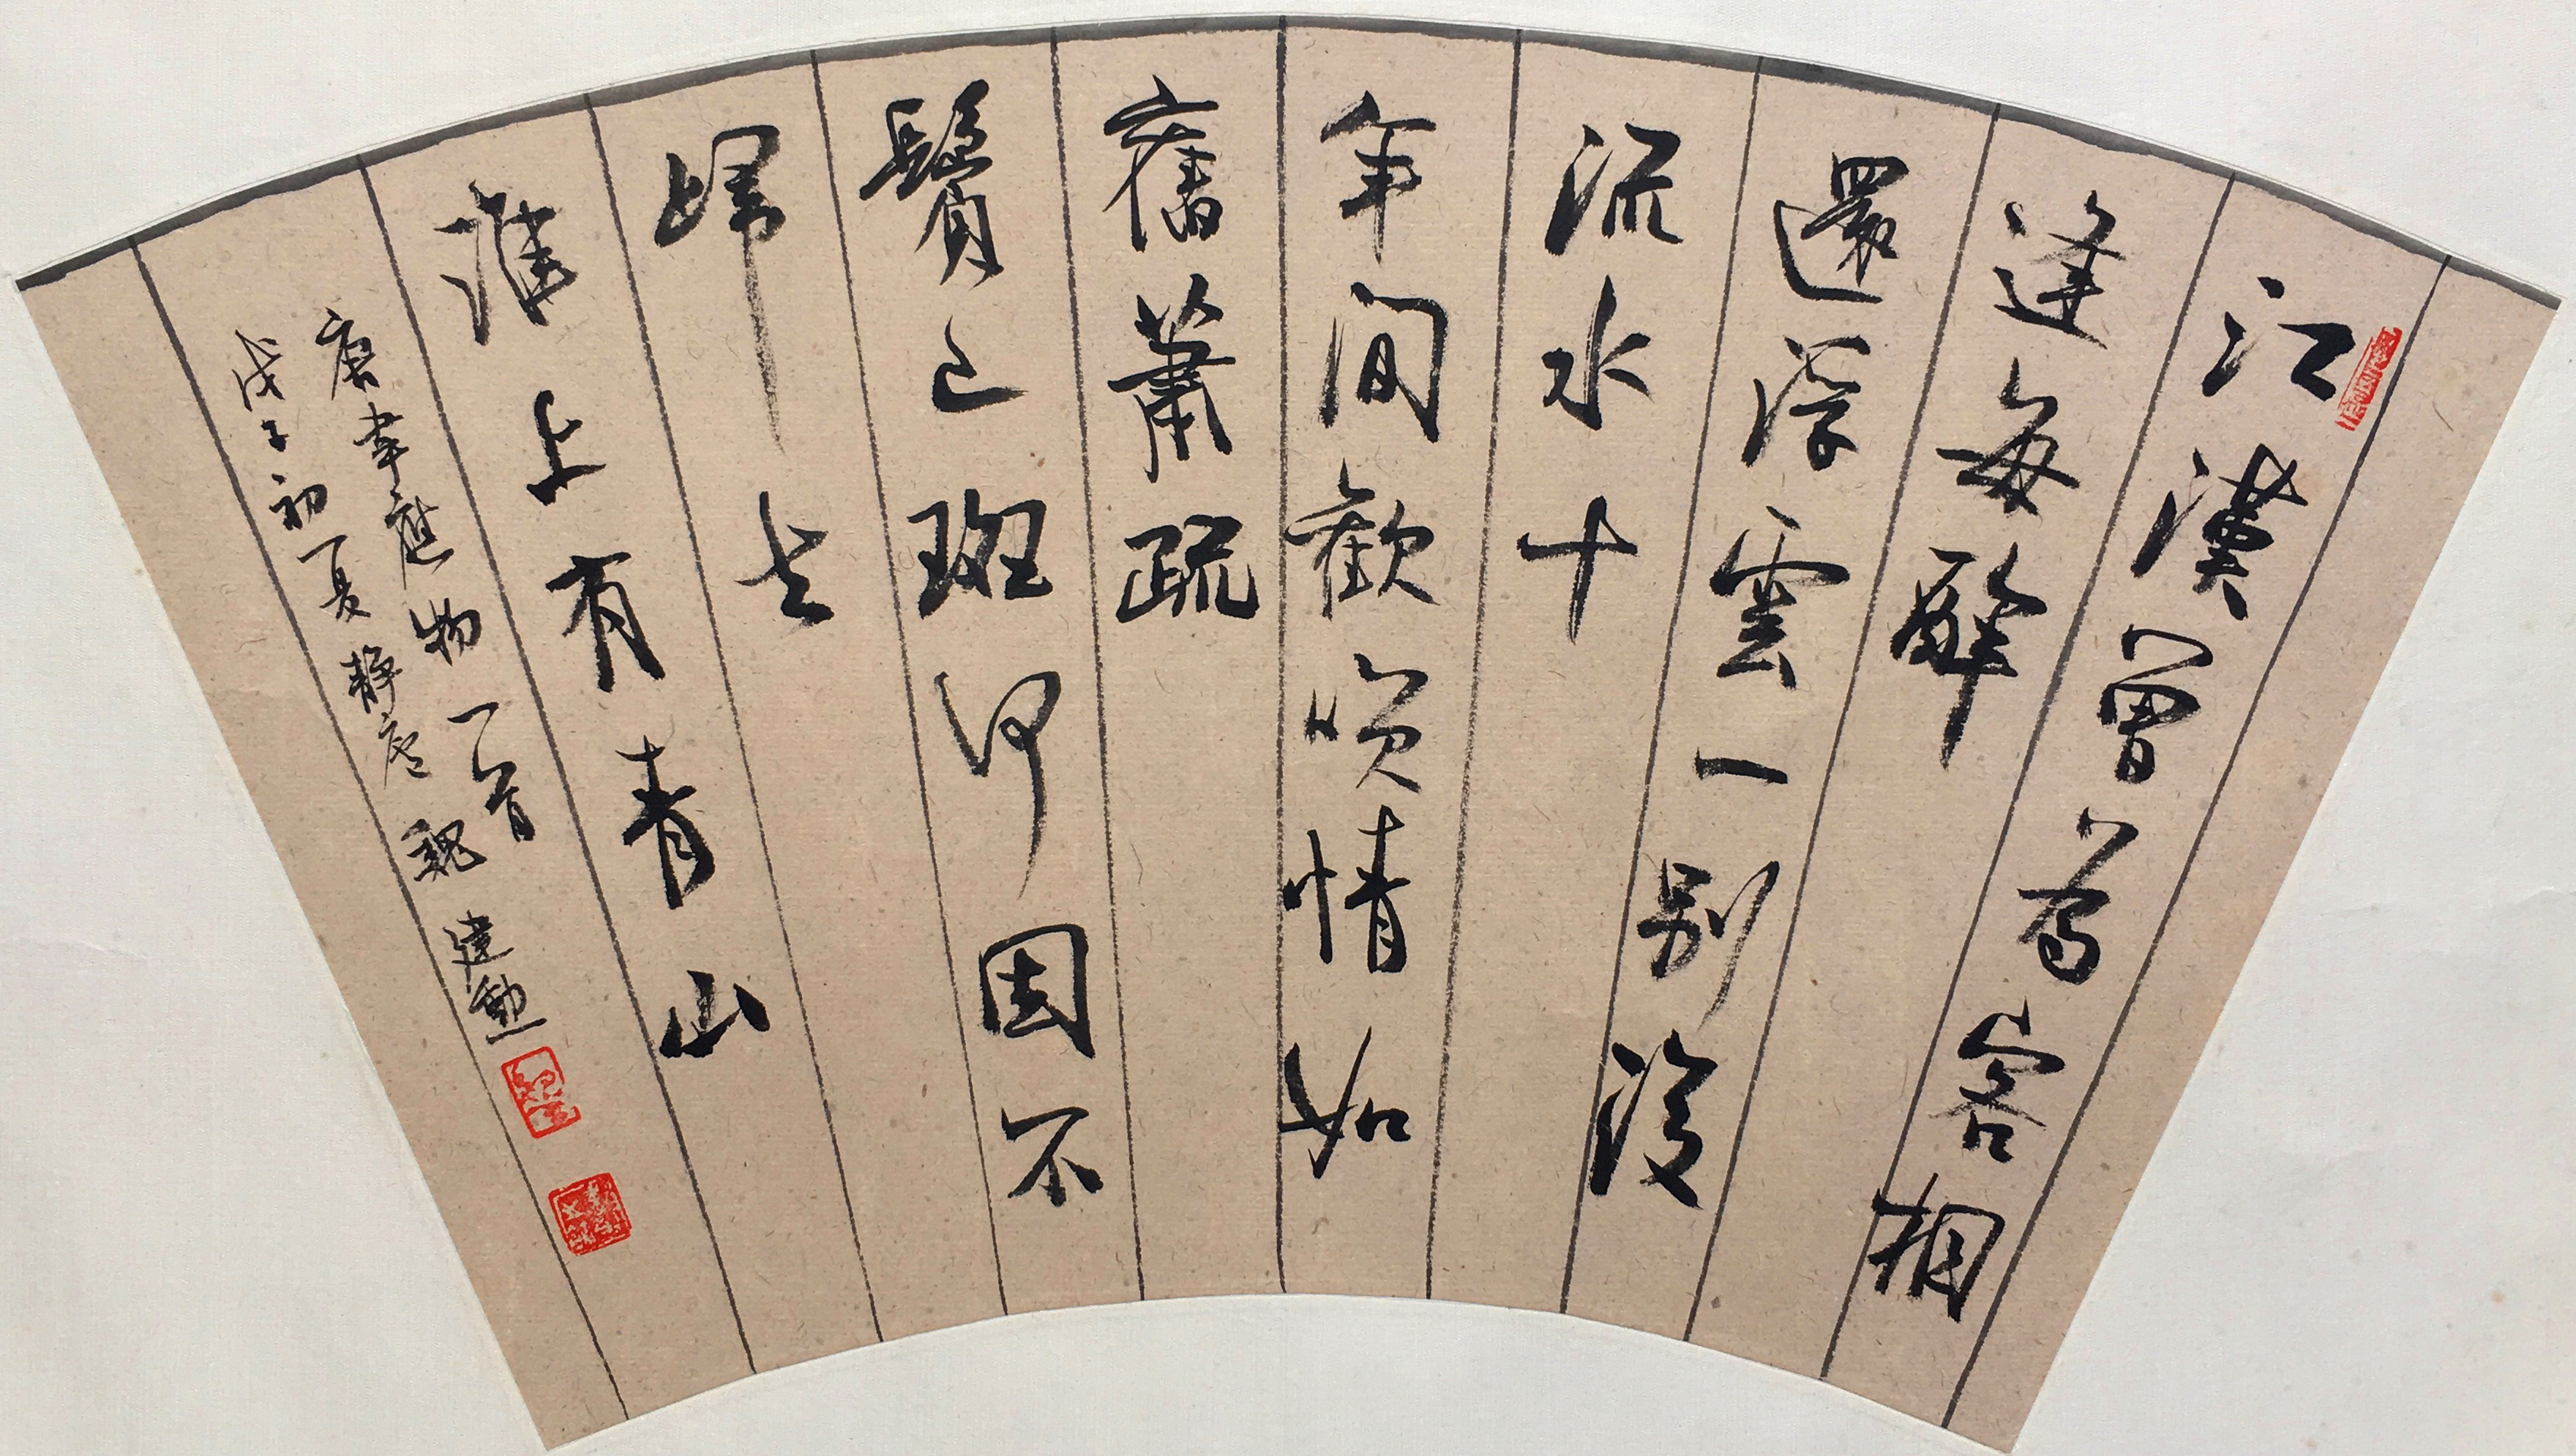 江漢曾為客相
逢每醉
還浮雲一別後
流水十
年間歡咲情如
舊蕭疏
鬢已斑何因不
歸去
淮上有青山
唐韋應物一首
戊子初夏靜廬魏建勳